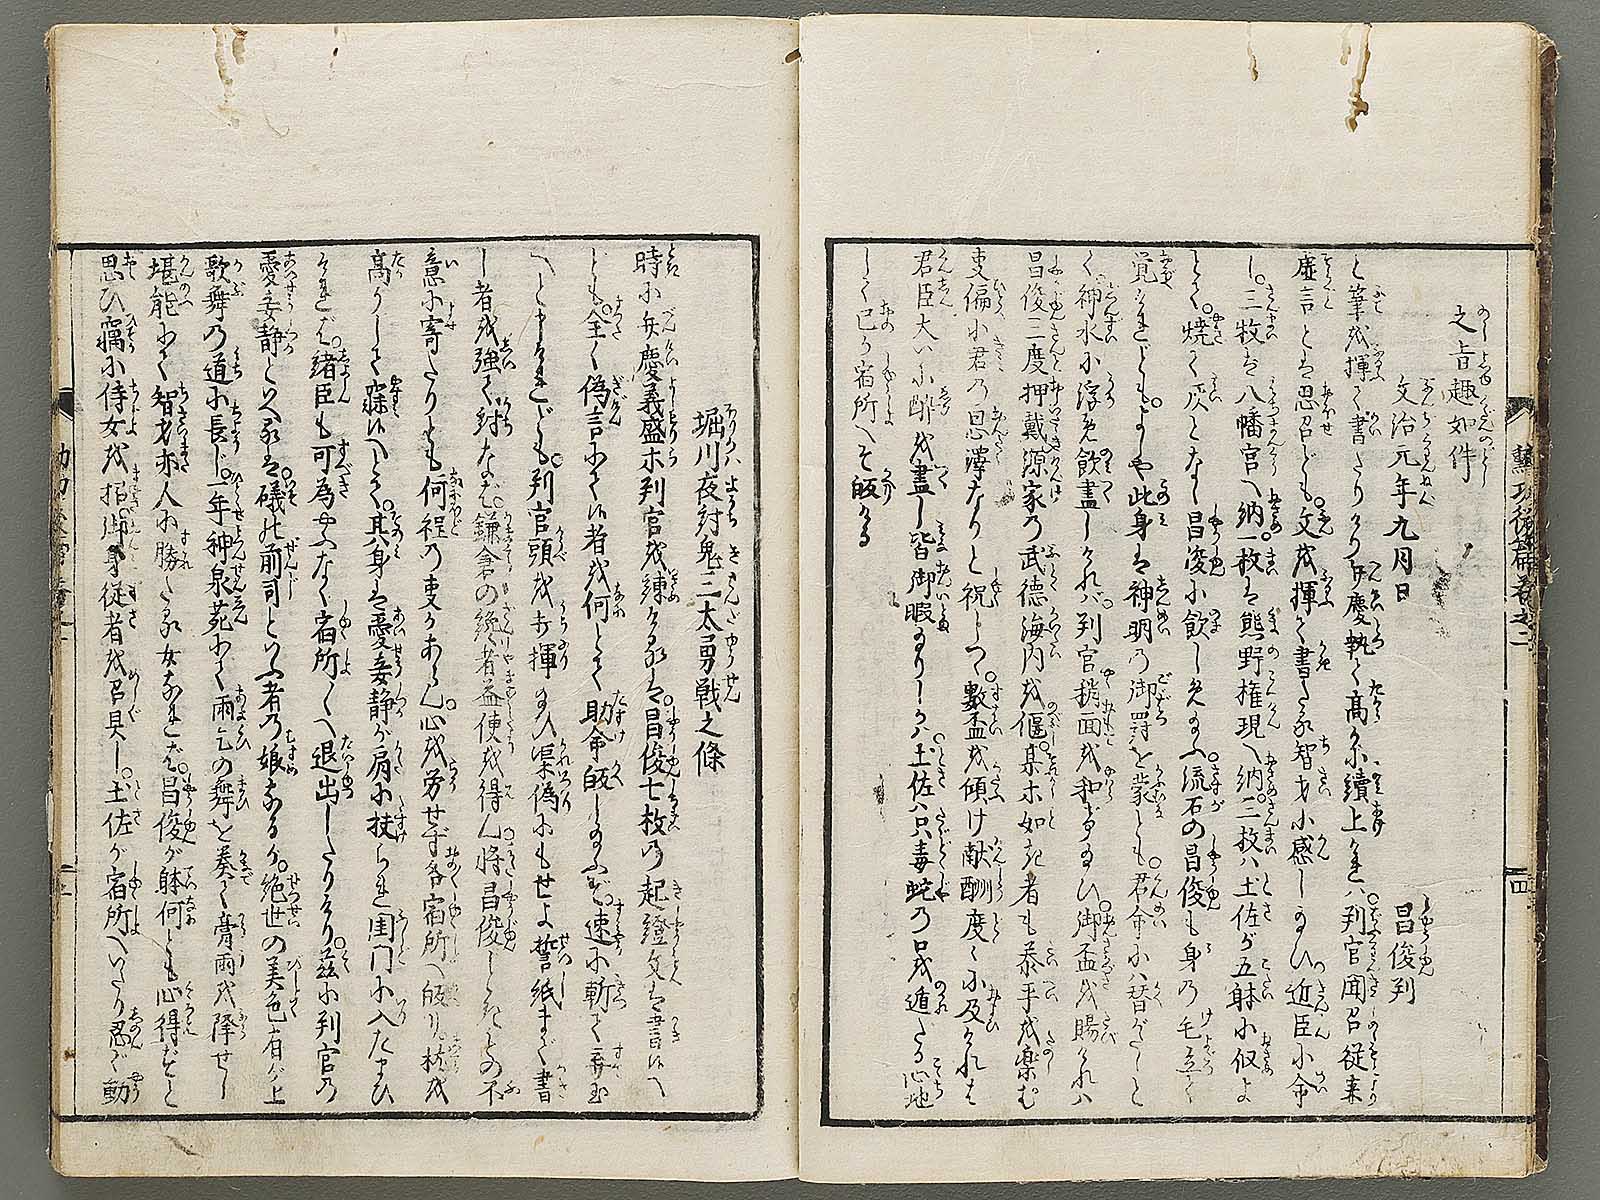 之旨趣如件
文治元年九月日
昌俊判
と筆を揮て書たりけり弁慶執て高らかに續上ければ判官聞召従来
虚言とは思召ども文を揮て書たる智才に感じ給ひ近臣に命
じ三枚は八幡宮へ納一枚は熊野権現へ納二枚ハ土佐が五躰に収よ
とて焼て灰となし昌俊に飲しめ給ふ流石の昌俊も身の毛立て
覚けれどもよしや此身は神明の御罸を蒙とも君命にハ替がたしと
て神水に浮め飲盡しければ判官穏面を和げ給ひ御盃を賜ければ
昌俊三度押戴源家の武徳海内を偃某ホ如き者も泰平を楽む
事偏に君の恩澤なりと祝しつゝ數盃を傾け献酬度々に及ければ
君臣大いに酔を盡し皆御暇給りしかば土佐ハ只毒蛇の口を遁たる心地
して己が宿所へぞ皈ける
堀川夜討鬼三太勇戦之條
時に弁慶義盛ホ判官を諌けるは昌俊七枚の起證文は書たれ
ども全く偽言にて候者を何とて助命皈し給ふぞ速に斬て棄玉
へと申けれども判官頭を打揮給ひ渠偽にもせよ誓紙まで書
し者を強て討なば鎌倉の讒者益便を得ん将昌俊しきとの不
意に寄たりとも何程の事かあらん心を労せず各宿所へ皈り枕を
高うして寐候へとて其身は愛妾静が肩に扶られ閨門に入たまひ
ければ諸臣も可為やふなく宿所々へ退出したりけり茲に判官の
愛妾静といへるは礒の前司といふ者の娘なるが絶世の美色有が上
歌舞の道に長じ一年神泉苑にて雨乞の舞を奏て膏雨を降せし
堪能にて智才亦人に勝たる女なれば昌俊が躰何とも心得ずと
思ひ竊に侍女を招御身従者を召具し土佐が宿所へいたり忍で動
勲功後篇巻之二
四